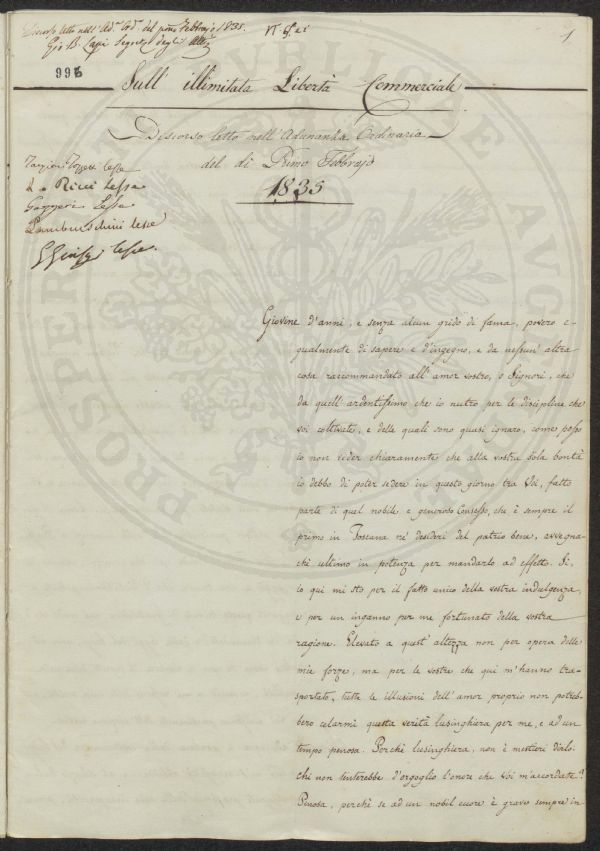 Discorso letto nell'Ad.za Ord.a del pmo Febbrajo 1835.
Gio B. Segret.o degli Atti
1
996
Sull'illimitata Libertà Commerciale
Discorso letto nell'Adunanza Ordinaria
del dì Primo Febbrajo
1835
Targioni Tozzetti lesse
L. Ricci lesse
Gazzeri Lesse
Lambruschini lesse
lesse.
Giovine d'anni, e senza alcun grido di fama, povero e-
qualmente di sapere e d'ingegno, e da nessun'altra
cosa raccommandato all'amor vostro, o Signori, che
da quell'ardentissimo che io nutro per le discipline che
voi coltivate, e delle quali sono quasi ignaro, come posso
io non veder chiaramente che alla vostra sola bontà
io debbo di poter sedere in questo giorno tra Voi, fatto
parte di quel nobile e generoso Consesso, che è sempre il
primo in Toscana ne' desiderj del patrio bene, avvegna-
chè ultimo in potenza per mandarlo ad effetto. Sì,
io qui mi sto per il fatto unico della vostra indulgenza,
e per un inganno per me fortunato della vostra
ragione. Elevato a quest'altezza non per opera delle
mie forze, ma per le vostre che qui m'hanno tra-
sportato, tutte le illusioni dell'amor proprio non potreb-
bero celarmi questa verità lusinghiera per me, e ad un
tempo penosa. Perchè lusinghiera, non è mestieri dirlo:
chi non sentirebbe d'orgoglio l'onore che Voi m'accordate?
Penosa, perchè se ad un nobil cuore è grave sempre in-